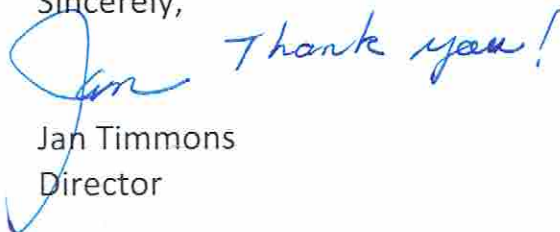 Sincerely,
Jan Thank you!
Jan Timmons
Director